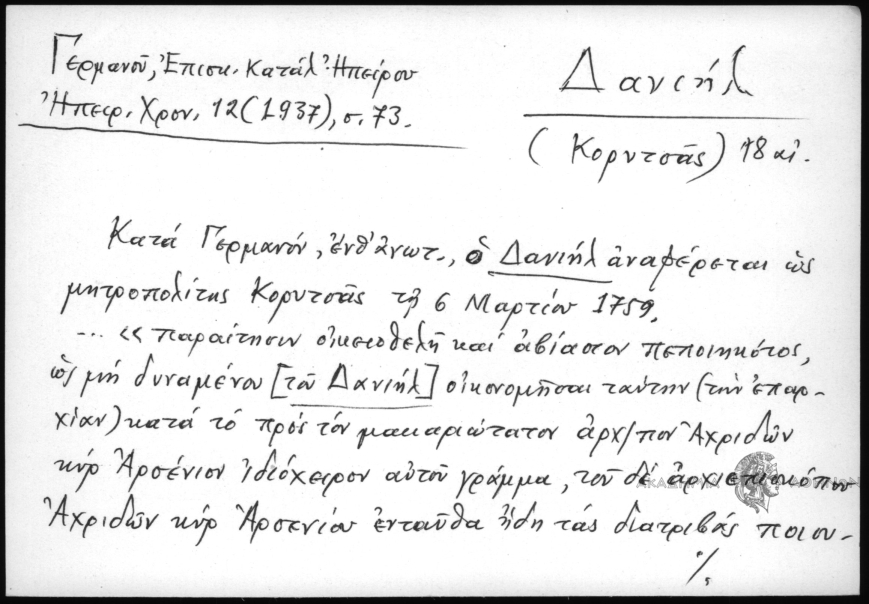 Γερμανοῦ, Ἐπισκ. Κατάλ. Ἠπείρου
Ἠπειρ. Χρον. 12 (1937), σ. 73.
Δανιήλ
(Κορυτσᾶς) 18 αἰ.
Κατά Γερμανόν, ἔνθ' ἀνωτ., ὁ Δανιήλ ἀναφέρεται ὡς
μητροπολίτης Κορυτσᾶς τῇ 6 Μαρτίου 1759.
... «παραίτησιν οἰκειοθελῆ καί ἀβίαστον πεποιηκότος,
ὡς μή δυναμένου [τοῦ Δανιήλ] οἰκονομῆσαι ταύτην (τήν ἐπαρ-
χίαν) κατά τό πρός τόν μακαριώτατον ἀρχ/πον Ἀχριδῶν
κύρ Ἀρσένιον ἰδιόχειρον αὐτοῦ γράμμα, τοῦ δέ ἀρχιεπισκόπου
Ἀχριδῶν κύρ Ἀρσενίου ἐνταῦθα ἤδη τάς διατριβάς ποιου-
./.
ΑΚΑΔΗΜΙΑ ΑΘΗΝΩΝ